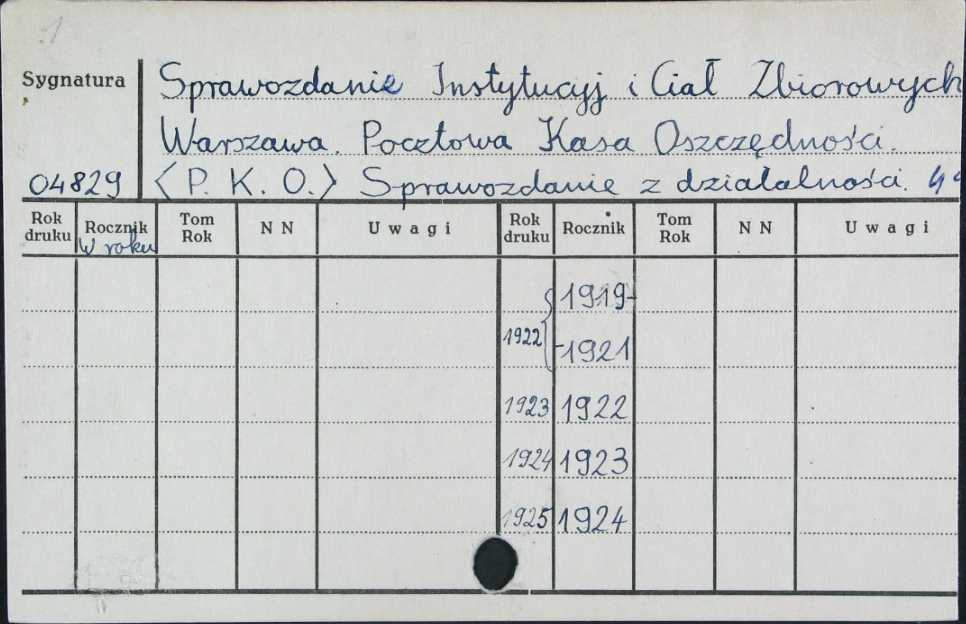 1
Sygnatura
Sprawozdanie Instytucyj i Ciał Zbiorowych
Warszawa. Pocztowa Kasa Oszczędności.
04829 <P. K. O.> Sprawozdanie z działalności.
Rok druku Rocznik Tom Rok N N Uwagi Rok druku Rocznik Tom Rok N N Uwagi
W roku
1919-
1922 -1921
1923 1922
1924 1923
1925 1924